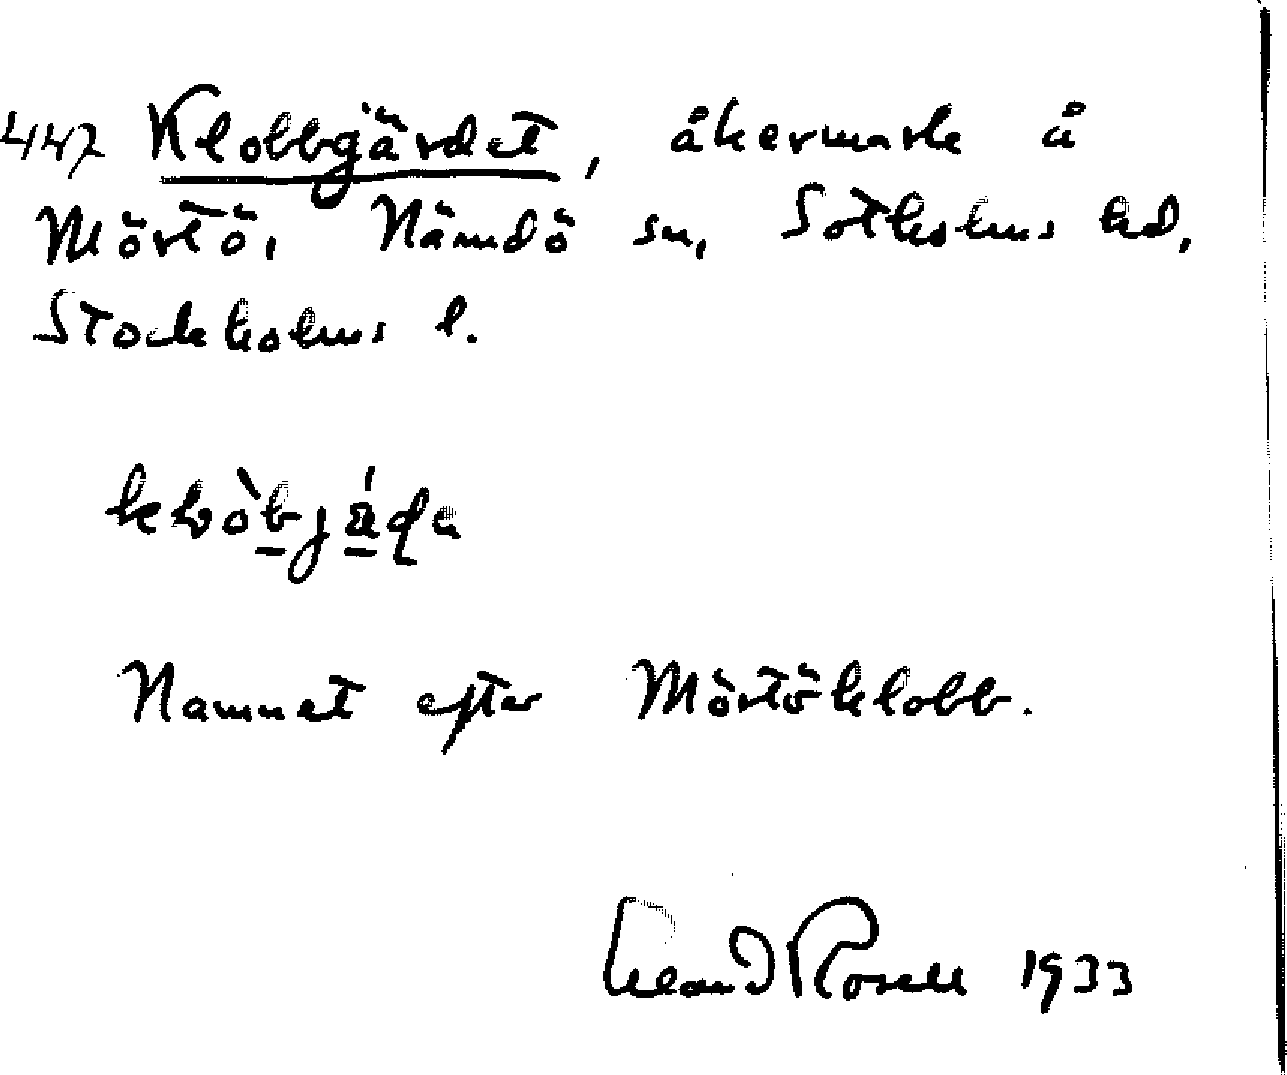 447 Klobbgärdet, åkermark å
Mörtö, Nämdö sn, Sotholms hd,
Stockholms l.
Namnet efter Mörtöklobb.
Rosell 1933